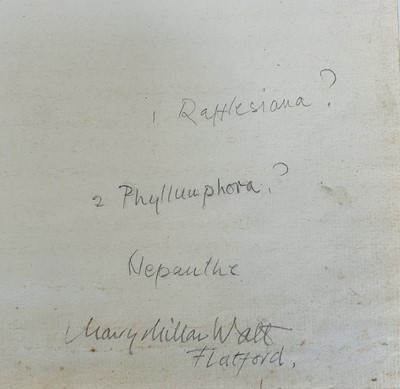 1 Rafflesiana?
2 Phyllumphora.?
Nepanthe
Mary Millar Watt
Flatford.